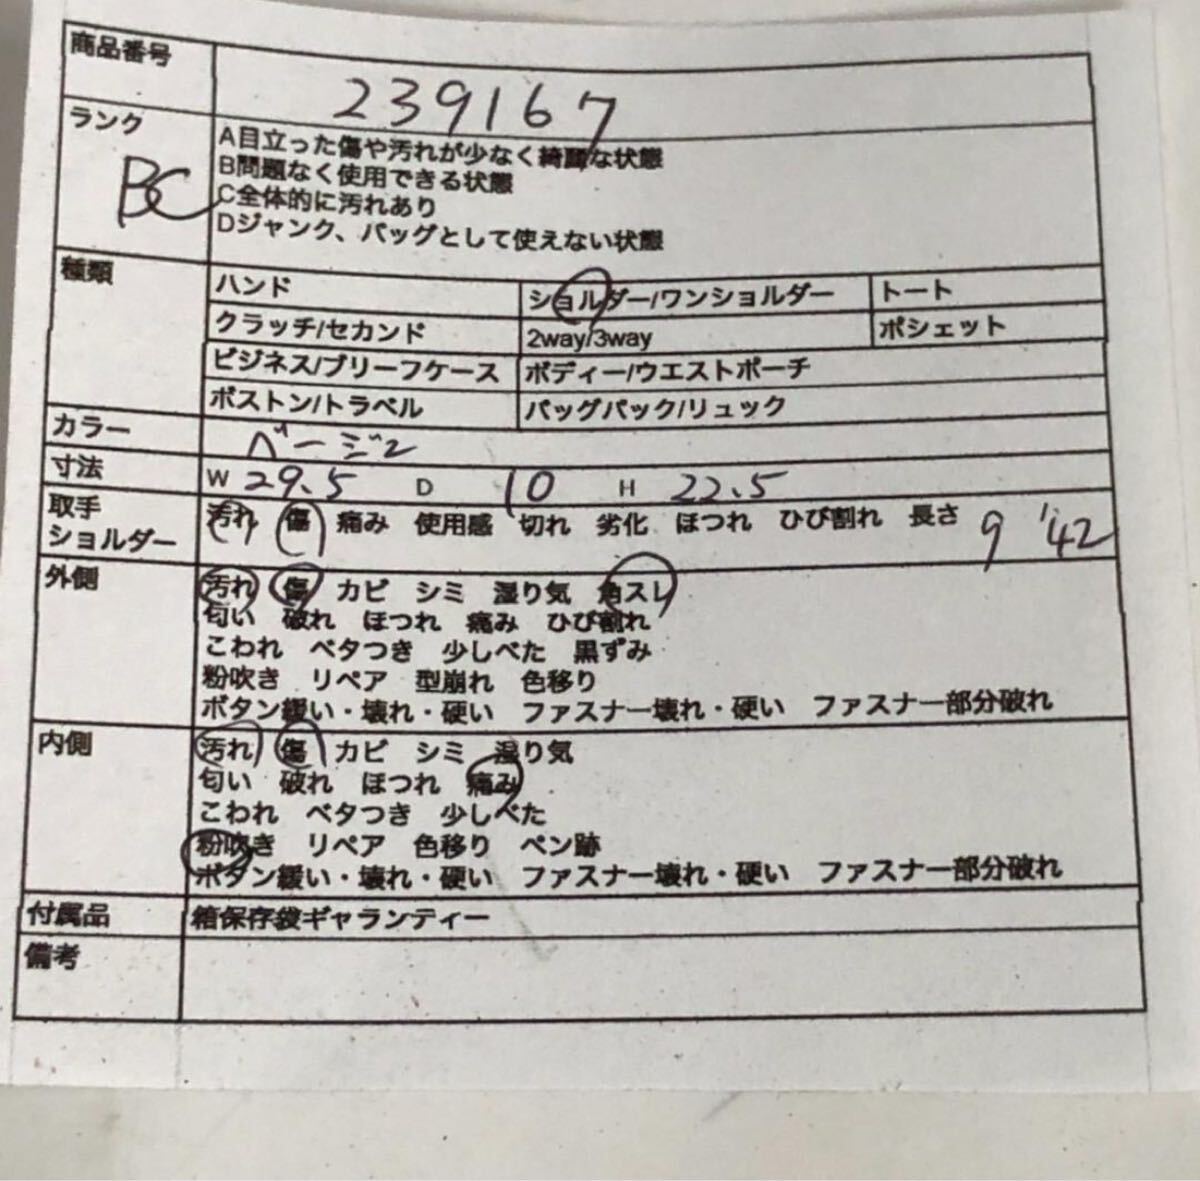 商品番号 239167
ランク BC
A目立った傷や汚れが少なく綺麗な状態
B問題なく使用できる状態
C全体的に汚れあり
Dジャンク、バッグとして使えない状態
種類 ハンド ショルダー/ワンショルダー トート
クラッチ/セカンド 2way/3way ポシェット
ビジネス/ブリーフケース ボディー/ウエストポーチ
ボストン/トラベル バッグパック/リュック
カラー ベージュ
寸法 W 29.5 D 10 H 22.5
取手 汚れ 傷 痛み 使用感 切れ 劣化 ほつれ ひび割れ 長さ 9 42
ショルダー
外側 汚れ 傷 カビ シミ 湿り気 角スレ
匂い 破れ ほつれ 痛み ひび割れ
こわれ ベタつき 少しべた 黒ずみ
粉吹き リペア 型崩れ 色移り
ボタン緩い・壊れ・硬い ファスナー壊れ・硬い ファスナー一部分破れ
内側 汚れ 傷 カビ シミ 湿り気
匂い 破れ ほつれ 痛み
こわれ ベタつき 少しべた
粉吹き リペア 色移り ペン跡
ボタン緩い・壊れ・硬い ファスナー壊れ・硬い ファスナー一部分破れ
付属品 箱保存袋ギャランティー
備考